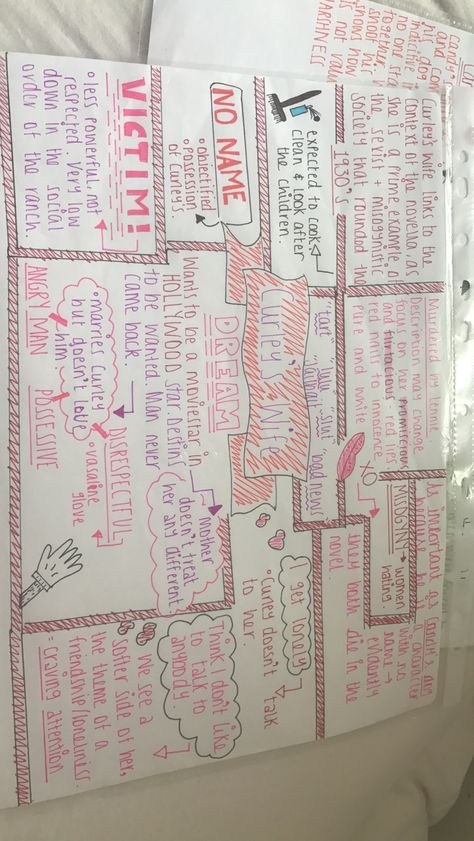 Curley's wife links to the
context of the novella, as
she is a prime example of
the sexist + misogynistic
society that rounded the
1930's
expected to cook,
clean & look after
the children.
NO NAME
• Objectified
• Possession
of Curley's.
VICTIM!
• less powerful, not
respected. Very low
down in the social
order of the ranch.
Murdered by Lennie.
Description may change
focus on her promiscuous
and flirtacious - red lips
red nails to innocence
Pure and white
"tart"
"slut"
"bad news"
Curley's Wife
DREAM
Wants to be a moviestar in
HOLLYWOOD star. Destins
to be wanted. Man never
came back.
• marries Curley
but doesn't love
him.
ANGRY MAN
POSSESSIVE
DISRESPECTFUL
• vasaline
glove
Mother
doesn't treat
her any different.
XO
MYDGINY → women
hating.
as important as Candy's dog
character
with no
name →
they both die in the
novel.
I get lonely
• Curley doesn't talk
to her.
Think I don't like
to talk to
anybody.
We see a
softer side of her,
the theme of
friendship/loneliness.
= craving attention
Candy's
and
his dog
no one
together
shoot his
shows how
is not
HARSHNESS